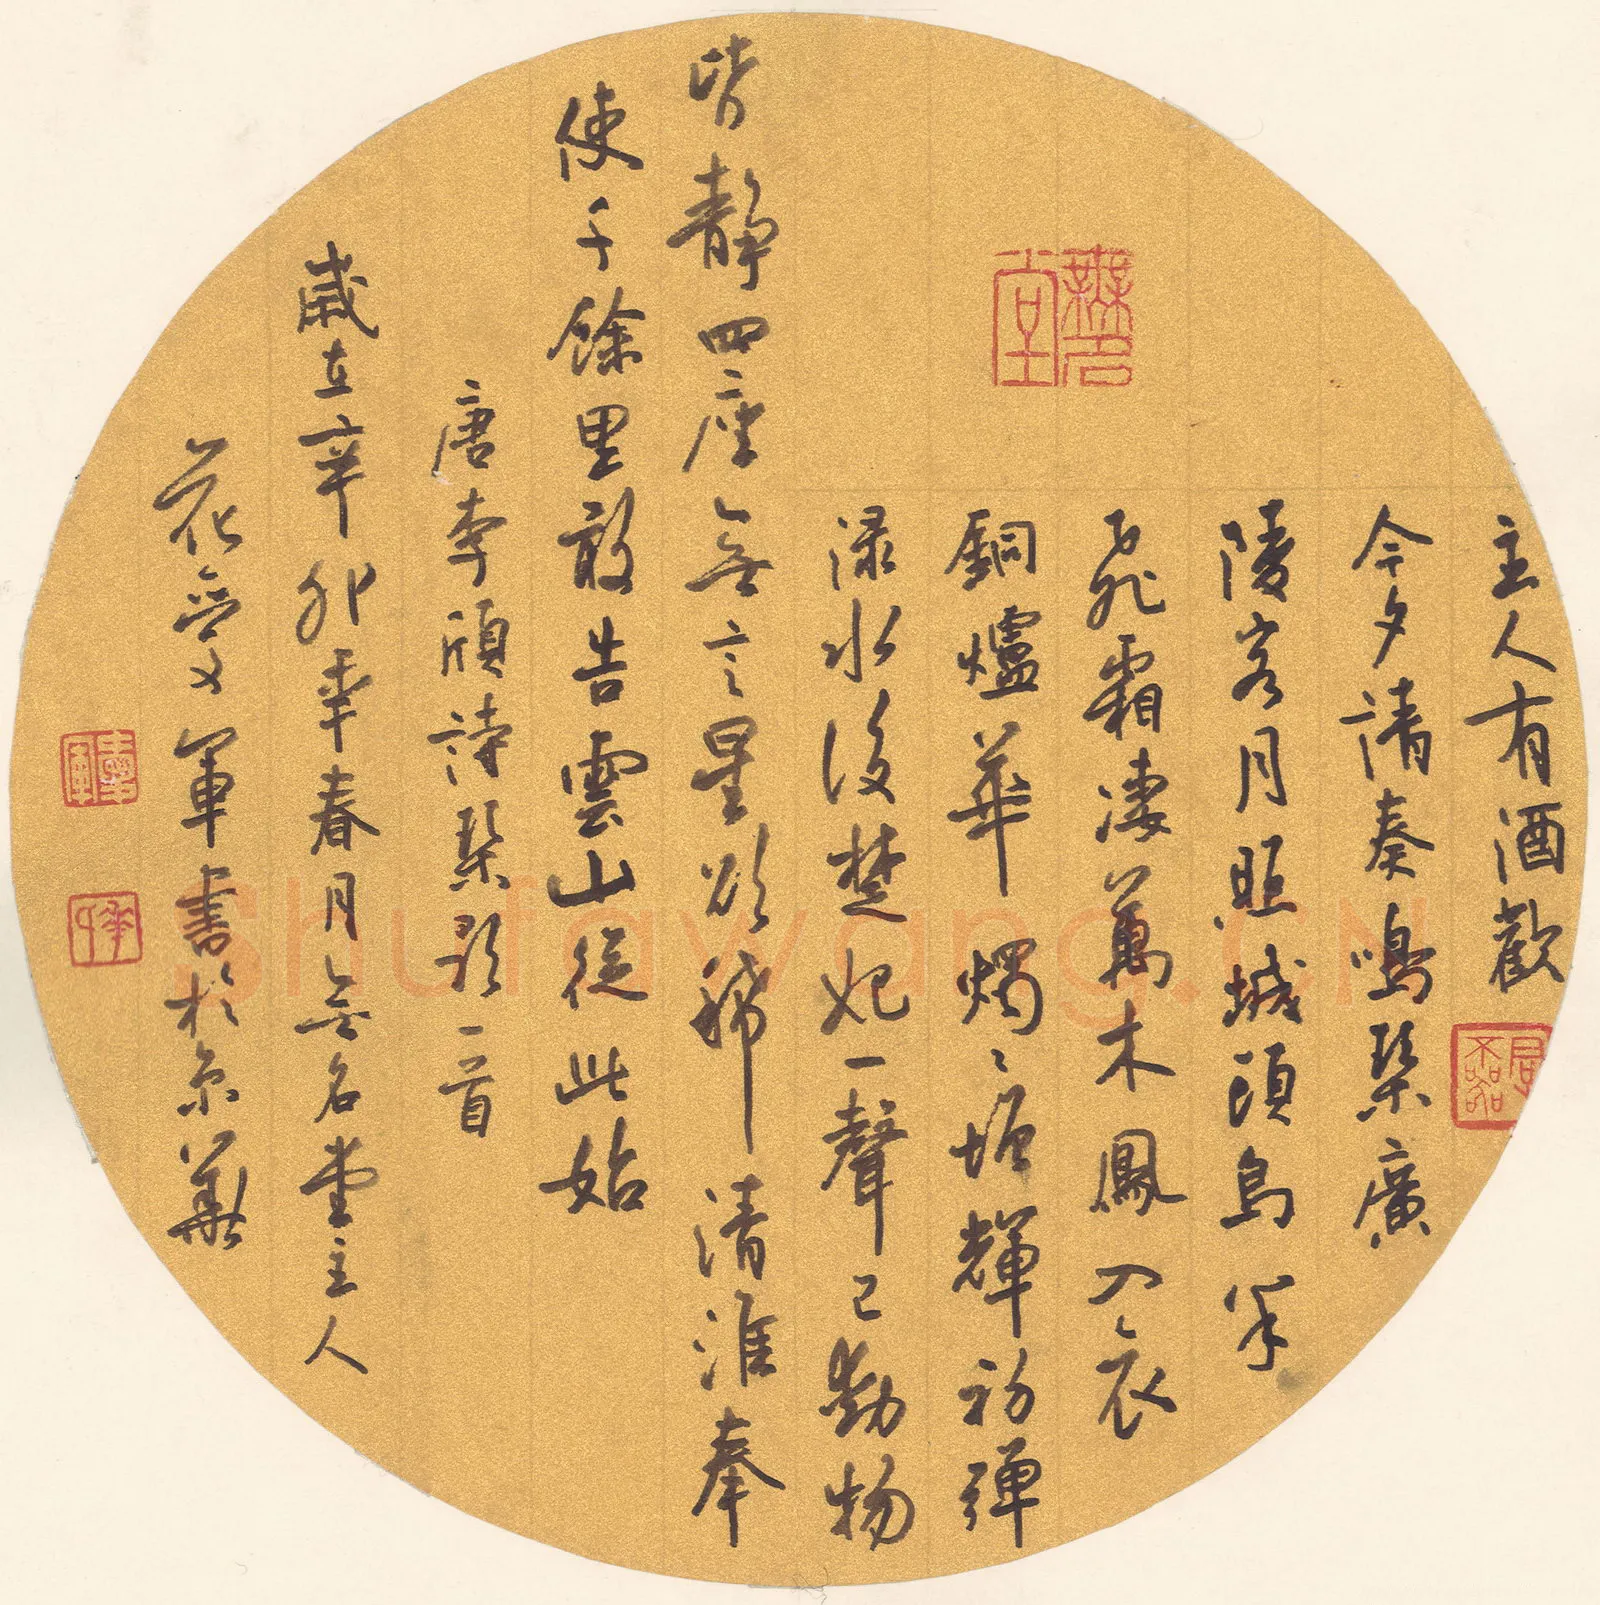 主人有酒歡
今夕請奏鳴琴廣
陵客月照城頭烏半
飛霜淒萬木鳳入衣
銅爐華燭〻增輝初彈
淥水後楚妃一聲已動物
皆靜四座無言星欲稀清淮奉
使千餘里敢告雲山從此始
唐李頎詩琴歌一首
歲在辛卯年春月無名堂主人
花愛軍書於京華
無名堂
Shufawang.CN